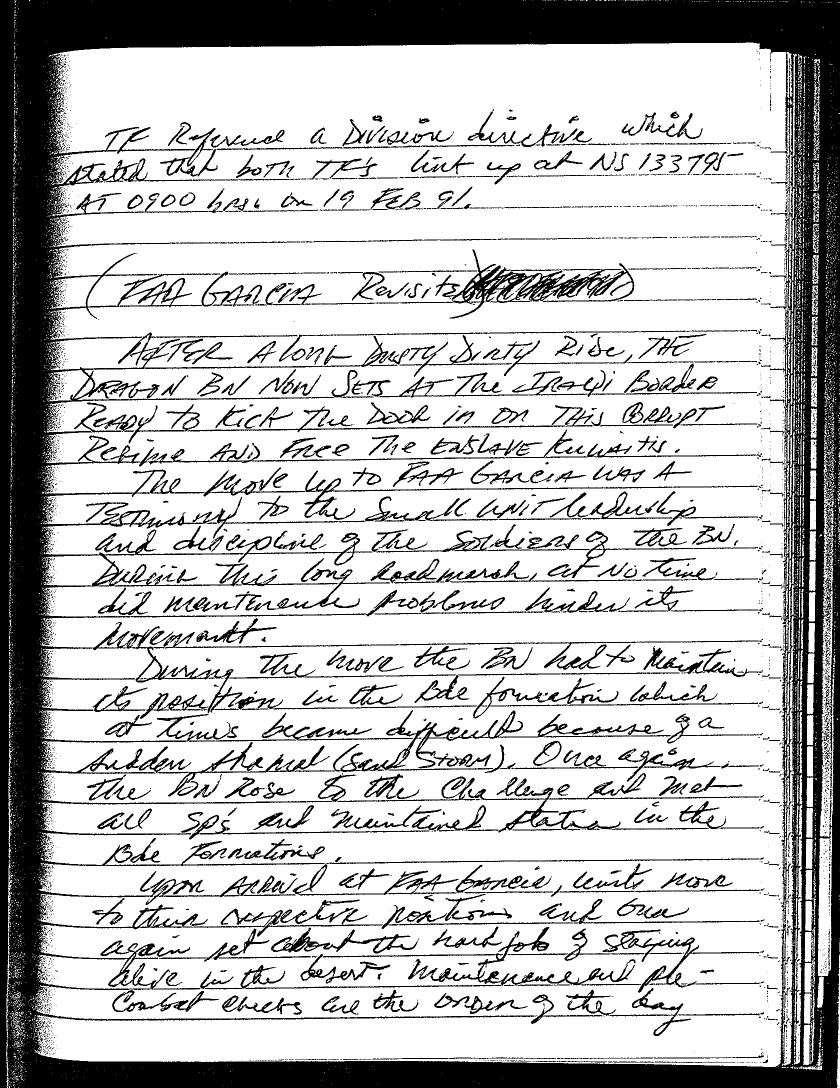 TF Reference a Division directive which
stated that both TF's link up at NS 133795
AT 0900 hrs. on 19 FEB 91.
(FAA GARCIA Revisits)
AFTER A Long Dusty Dirty Ride, THE
DRAGON BN NOW SETS AT The IRAQI BORDER
READY to Kick The DOOR in ON THIS CORRUPT
Regime AND Free The ENSLAVE Kuwaitis.
The move up to FAA GARCIA WAS A
Testimony to the Small UNIT leadership
and discipline of the Soldiers of the BN.
During This long Roadmarch, at No time
did maintenance problems hinder its
Movement.
During the move the BN had to Maintain
its position in the Bde formation which
at time's became difficult because of a
sudden shamal (Sand STORM). Once again,
the BN Rose to the Challenge and met
all Sp's and maintained station in the
Bde Formations.
Upon Arrival at FAA Garcia, units move
to their respective positions and once
again set about the hard job of staying
alive in the desert. Maintenance and pre-
Combat checks are the order of the day